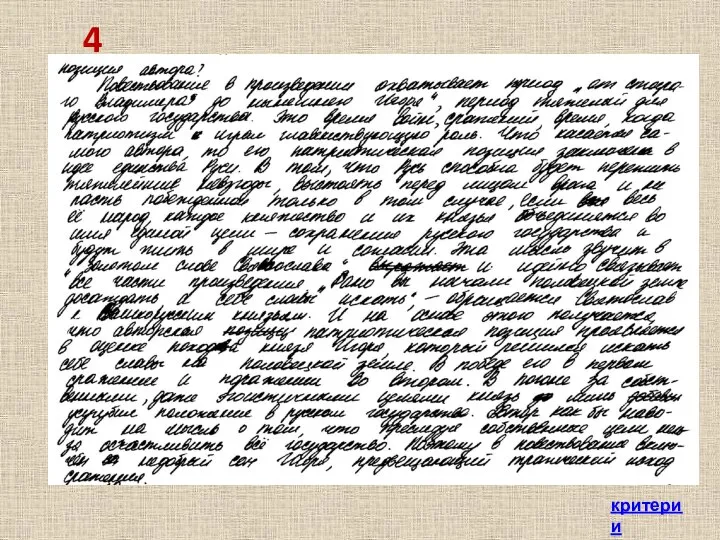 4
позиция автора?
Повествование в произведении охватывает период „от старо-
го Владимера" до нынешнего Игоря", период тяжелый для
русского государства. Это время войн, сражений время, когда
патриотизм играл главенствующую роль. Что касается са-
мого автора, то его патриотическая позиция заключена в
идее единства Руси. В том, что Русь способна будет пережить
тяжелейшие невзгоды, выстоять перед лицом врага и не
пасть побеждённой только в том случае, если весь
её народ, каждое княжество и их князья объединятся во
имя единой цели – сохранения русского государства и
будут жить в мире и согласии. Эта мысль звучит в
„Золотом слове Святослава" и идейно связывает
все части произведения. „Рано вы начали половецкой земле
досаждать а себе славы искать", – обращается Святослав
к князьям. И на основе этого получается,
что авторская патриотическая позиция проявляется
в оценке похода князя Игоря, который решился искать
себе славы на половецкой земле. В победе его в первом
сражении и поражении во втором. В погоне за собст-
венными, даже эгоистичными целями князь лишь
усугубил положение в русском государстве. Автор как бы наво-
дит на мысль о том, что преследуя собственные цели, нель-
зя осчастливить всё государство. Поэтому в повествование вклю-
чён недобрый сон Игоря, предвещающий трагический исход
сражения.
критери
и